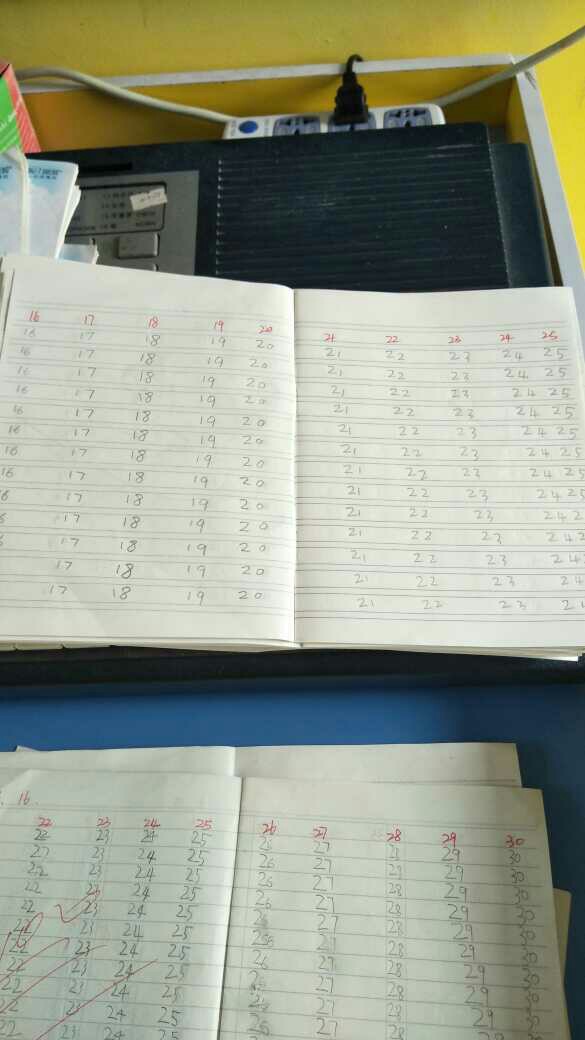 16 17 18 19 20
16 17 18 19 20
16 17 18 19 20
16 17 18 19 20
16 17 18 19 20
16 17 18 19 20
16 17 18 19 20
16 17 18 19 20
16 17 18 19 20
16 17 18 19 20
17 18 19 20
17 18 19 20
17 18 19 20
17 18 19 20
21 22 23 24 25
21 22 23 24 25
21 22 23 24 25
21 22 23 24 25
21 22 23 24 25
21 22 23 24 25
21 22 23 24 25
21 22 23 24 25
21 22 23 24 25
21 22 23 24 2
21 22 23 24 2
21 22 23 24
21 22 23 24
21 22 23 2
16.
22 23 24 25
22 23 24 25
22 23 24 25
22 23 24 25
22 23 24 25
22 23 24 25
22 23 24 25
22 23 24 25
22 23 24 25
22 23 24 25
22 23 24 25
26 27 28 29 30
26 27 28 29 30
26 27 28 29 30
26 27 28 29 30
26 27 28 29 30
26 27 28 29 30
26 27 28 29 30
26 27 28 29 30
26 27 28 29 30
26 27 28 29 30
26 27 28 29 30